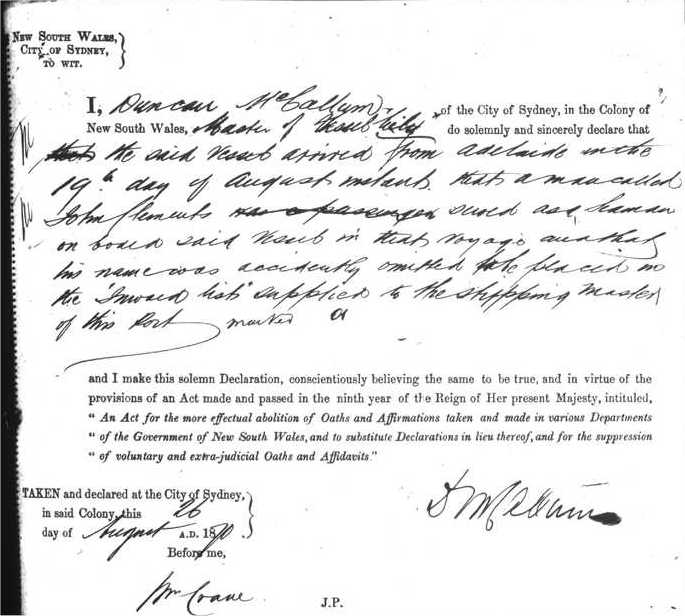 NEW SOUTH WALES,
CITY OF SYDNEY,
TO WIT.
I, Duncan McCallum of the City of Sydney, in the Colony of
New South Wales, Master of Vessel do solemnly and sincerely declare that
the said Vessel arrived from Adelaide on the
19th day of August instant that a man called
John Clements was a passenger served as a Seaman
on board said Vessel in that voyage and that
his name was accidently omitted to be placed in
the "Inward list" supplied to the Shipping Master
of this Port marked A
and I make this solemn Declaration, conscientiously believing the same to be true, and in virtue of the
provisions of an Act made and passed in the ninth year of the Reign of Her present Majesty, intituled,
" An Act for the more effectual abolition of Oaths and Affirmations taken and made in various Departments
" of the Government of New South Wales, and to substitute Declarations in lieu thereof, and for the suppression
" of voluntary and extra-judicial Oaths and Affidavits."
TAKEN and declared at the City of Sydney,
in said Colony, this 26
day of August A.D. 1870
Before me,
D McCallum
Wm Crane
J.P.